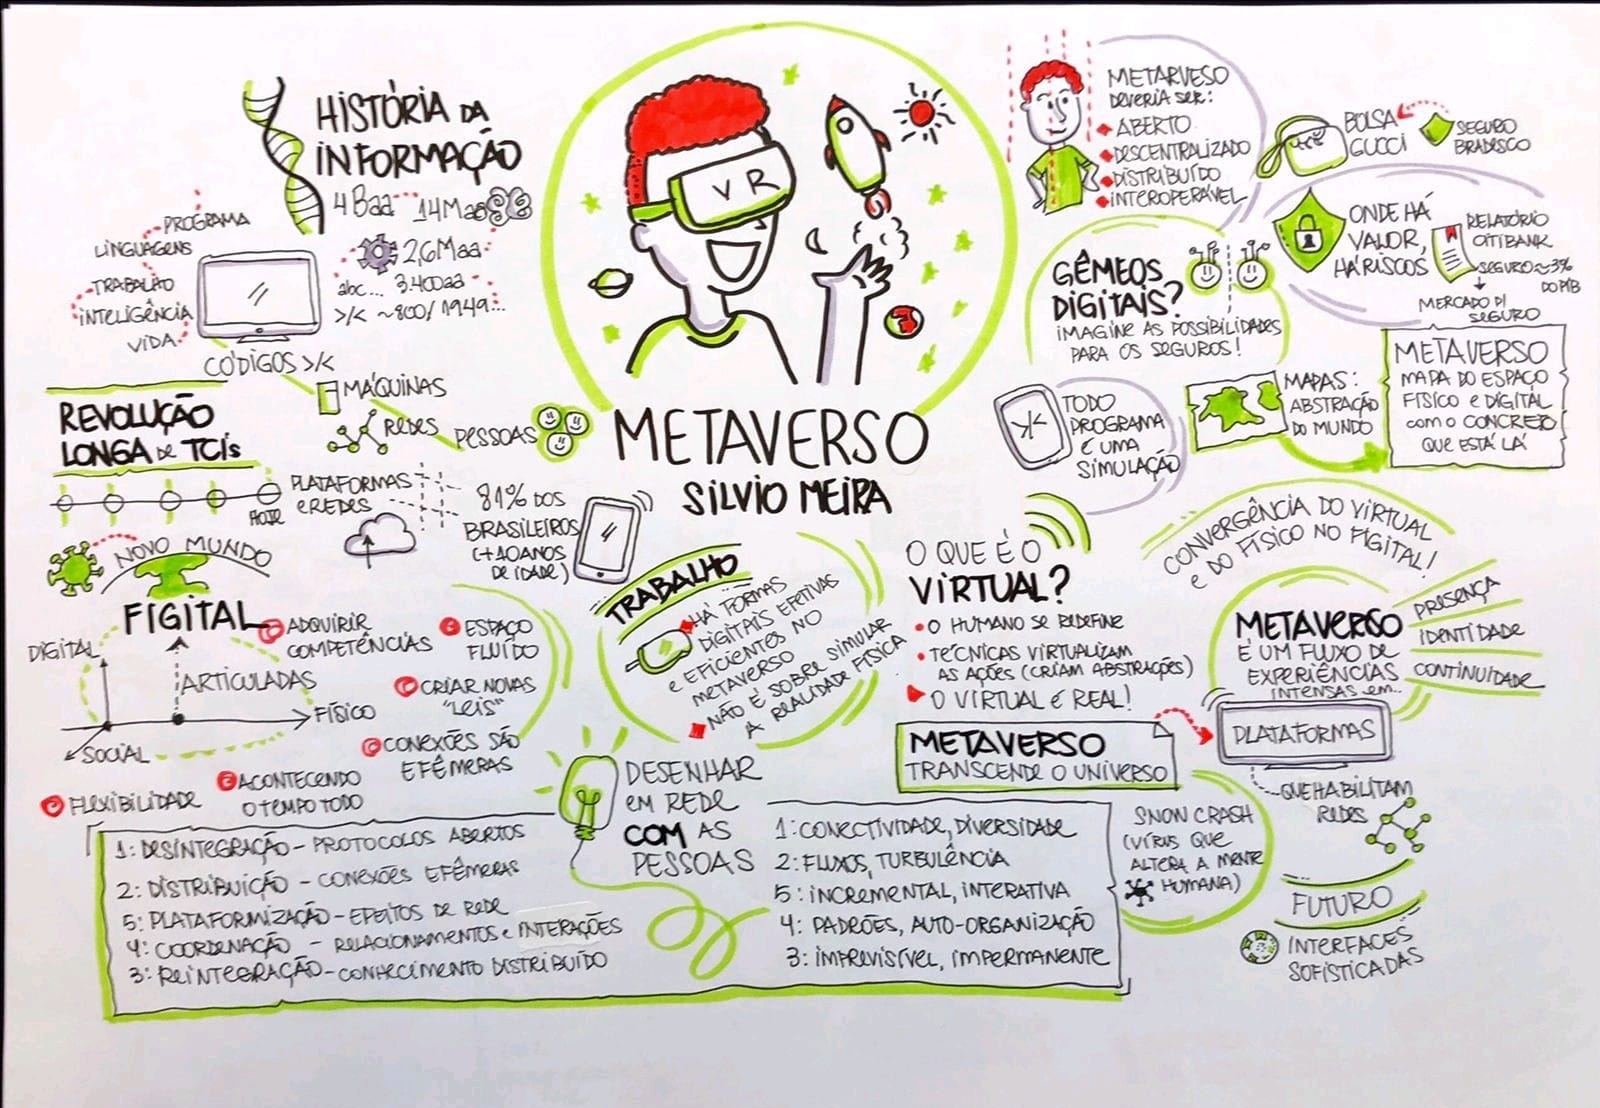 HISTÓRIA DA
INFORMAÇÃO
4Baa
14Maa
2,6Maa
abc... 3.400aa
>/< ~800/1949...
PROGRAMA
LINGUAGENS
TRABALHO
INTELIGÊNCIA
VIDA
CÓDIGOS >/<
MÁQUINAS
REDES
PESSOAS
REVOLUÇÃO
LONGA DE TCIs
HOJE
PLATAFORMAS
E REDES
81% DOS
BRASILEIROS
(+10 ANOS
DE IDADE)
NOVO MUNDO
FIGITAL
DIGITAL
ARTICULADAS
FÍSICO
SOCIAL
ADQUIRIR
COMPETÊNCIAS
ESPAÇO
FLUÍDO
CRIAR NOVAS
"LEIS"
CONEXÕES SÃO
EFÊMERAS
ACONTECENDO
O TEMPO TODO
FLEXIBILIDADE
1: DESINTEGRAÇÃO - PROTOCOLOS ABERTOS
2: DISTRIBUIÇÃO - CONEXÕES EFÊMERAS
5: PLATAFORMIZAÇÃO - EFEITOS DE REDE
4: COORDENAÇÃO - RELACIONAMENTOS E INTERAÇÕES
3: REINTEGRAÇÃO - CONHECIMENTO DISTRIBUÍDO
VR
METAVERSO
SILVIO MEIRA
TRABALHO
HÁ FORMAS
DIGITAIS EFETIVAS
E EFICIENTES NO
METAVERSO
NÃO É SOBRE SIMULAR
A REALIDADE FÍSICA
DESENHAR
EM REDE
COM AS
PESSOAS
1: CONECTIVIDADE, DIVERSIDADE
2: FLUXOS, TURBULÊNCIA
5: INCREMENTAL, INTERATIVA
4: PADRÕES, AUTO-ORGANIZAÇÃO
3: IMPREVISÍVEL, IMPERMANENTE
METARVESO
DEVERIA SER:
ABERTO
DESCENTRALIZADO
DISTRIBUÍDO
INTEROPERÁVEL
BOLSA
GUCCI
SEGURO
BRADESCO
ONDE HÁ
VALOR,
HÁ RISCOS
RELATÓRIO
CITIBANK
SEGURO ≈ 3%
DO PIB
MERCADO P/
SEGURO
GÊMEOS
DIGITAIS?
IMAGINE AS POSSIBILIDADES
PARA OS SEGUROS!
>/<
TODO
PROGRAMA
É UMA
SIMULAÇÃO
MAPAS:
ABSTRAÇÃO
DO MUNDO
METAVERSO
MAPA DO ESPAÇO
FÍSICO E DIGITAL
COM O CONCRETO
QUE ESTÁ LÁ
O QUE É O
VIRTUAL?
• O HUMANO SE REDEFINE
• TÉCNICAS VIRTUALIZAM
AS AÇÕES (CRIAM ABSTRAÇÕES)
O VIRTUAL É REAL!
METAVERSO
TRANSCENDE O UNIVERSO
CONVERGÊNCIA DO VIRTUAL
E DO FÍSICO NO FIGITAL!
METAVERSO
É UM FLUXO DE
EXPERIÊNCIAS
INTENSAS EM...
PRESENÇA
IDENTIDADE
CONTINUIDADE
PLATAFORMAS
QUE HABILITAM
REDES
SNOW CRASH
(VÍRUS QUE
ALTERA A MENTE
HUMANA)
FUTURO
INTERFACES
SOFISTICADAS